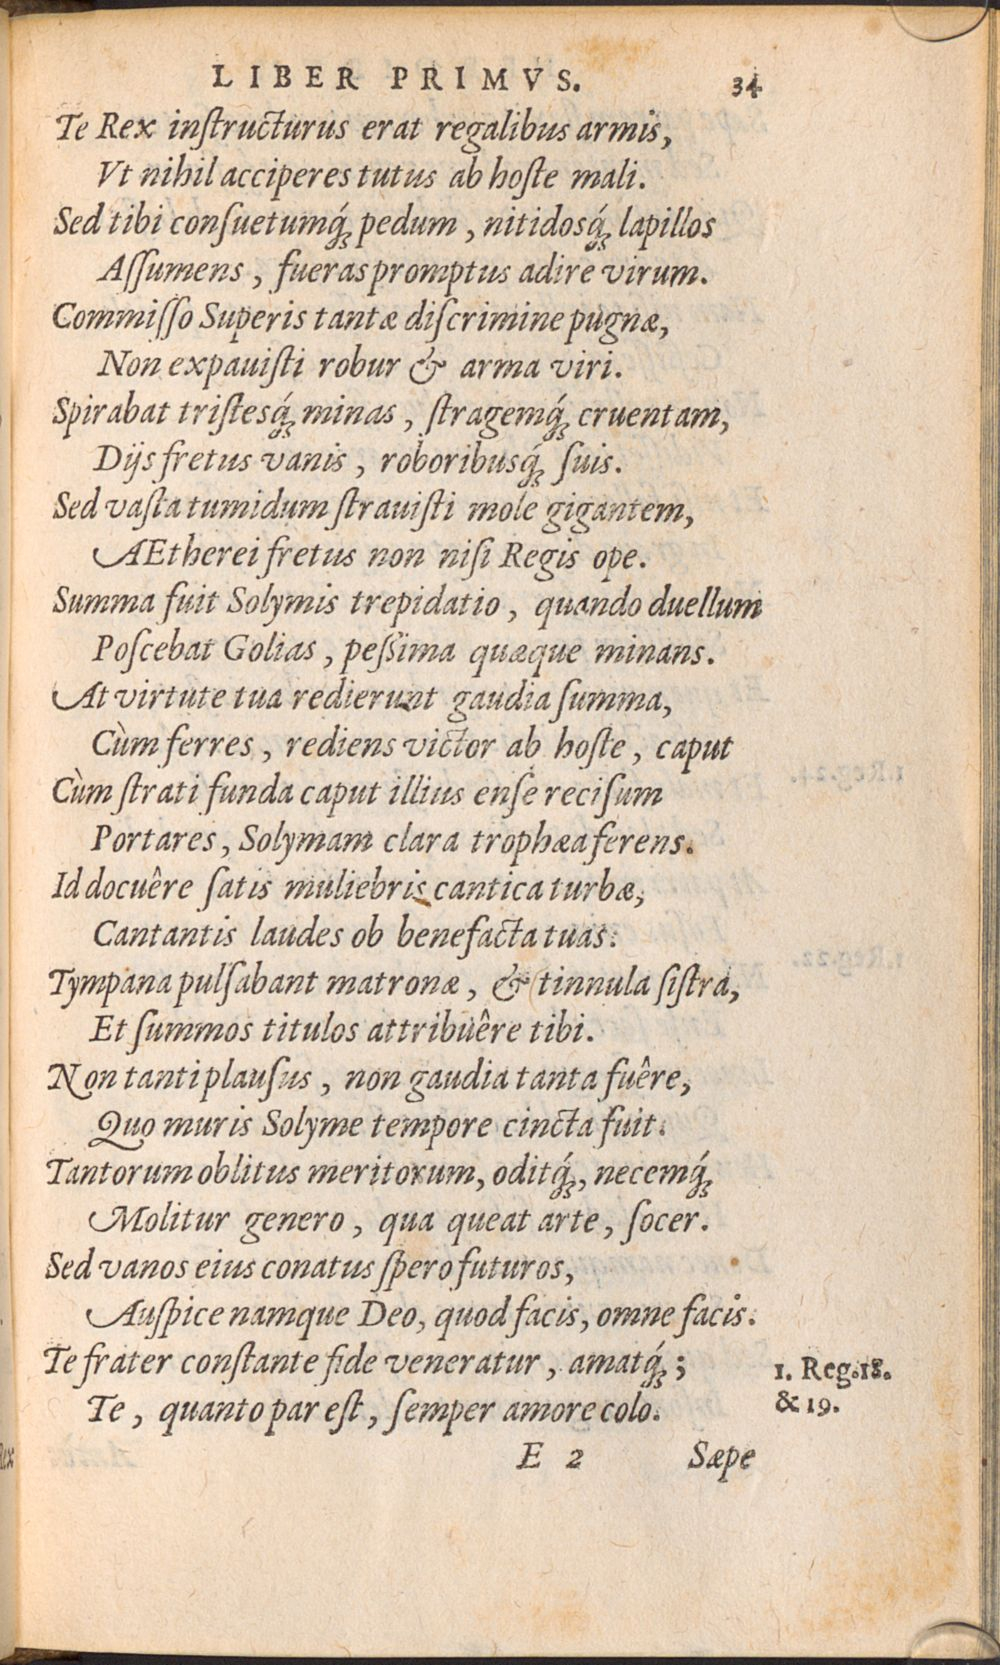 LIBER PRIMVS. 34
Te Rex inſtructurus erat regalibus armis,
Vt nihil acciperes tutus ab hoſte mali.
Sed tibi conſuetumq́ꝫ pedum, nitidosq́ꝫ lapillos
Aſſumens, fueras promptus adire virum.
Commiſſo Superis tantæ diſcrimine pugnæ,
Non expauiſti robur & arma viri.
Spirabat triſtesq́ꝫ minas, ſtragemq́ꝫ cruentam,
Dijs fretus vanis, roboribusq́ꝫ ſuis.
Sed vaſta tumidum ſtrauiſti mole gigantem,
AEtherei fretus non niſi Regis ope.
Summa fuit Solymis trepidatio, quando duellum
Poſcebat Golias, peſsima quæque minans.
At virtute tua redierunt gaudia ſumma,
Cùm ferres, rediens victor ab hoſte, caput
Cùm ſtrati funda caput illius enſe reciſum
Portares, Solymam clara trophæa ferens.
Id docuêre ſatis muliebris cantica turbæ,
Cantantis laudes ob benefacta tuas.
Tympana pulſabant matronæ, & tinnula ſiſtra,
Et ſummos titulos attribuêre tibi.
Non tanti plauſus, non gaudia tanta fuêre,
Quo muris Solyme tempore cincta fuit.
Tantorum oblitus meritorum, oditq́ꝫ, necemq́ꝫ
Molitur genero, qua queat arte, ſocer.
Sed vanos eius conatus ſpero futuros,
Auſpice namque Deo, quod facis, omne facis.
Te frater conſtante fide veneratur, amatq́ꝫ;
1. Reg. 18.
Te, quanto par eſt, ſemper amore colo.
& 19.
E 2 Sæpe